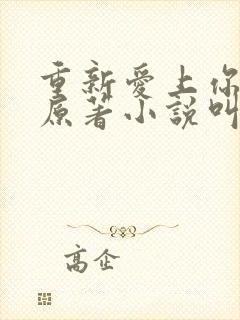 重新愛上你
原著小說叫
高企